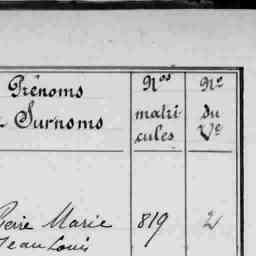 Prénoms
Surnoms
Nos
matri
cules
No
du
Ve
Marie
Jean Louis
819
2